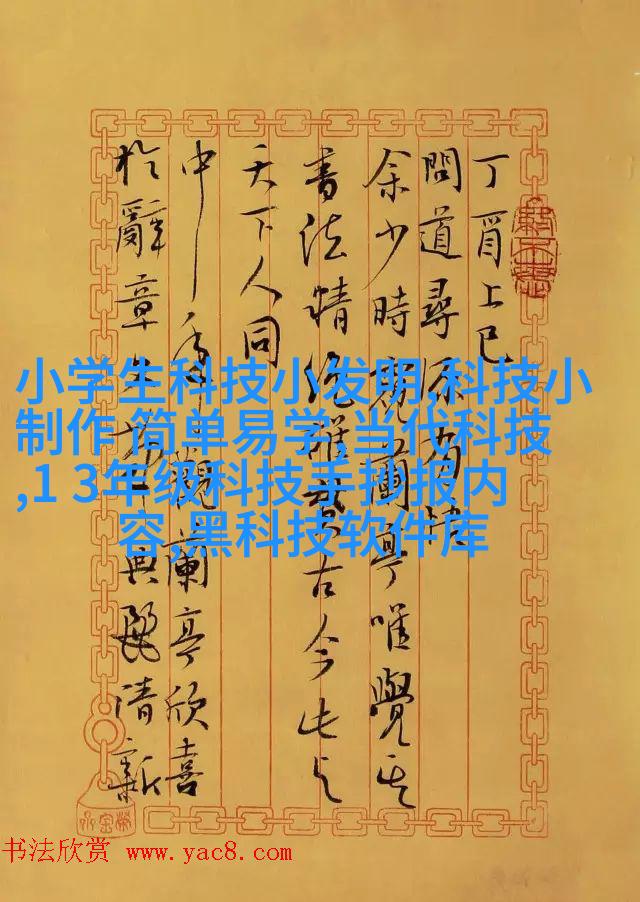 丁酉上巳
問道尋源
余少時觀蘭亭唯覺其
書法精絕雖古今此與
天下人同
中觀蘭亭欣喜
於辭章典麗清新
小学生科技小发明,科技小
制作 简单易学,当代科技
,1 3年级科技手抄报内
容,黑科技软件库
书法欣赏 www.yac8.com